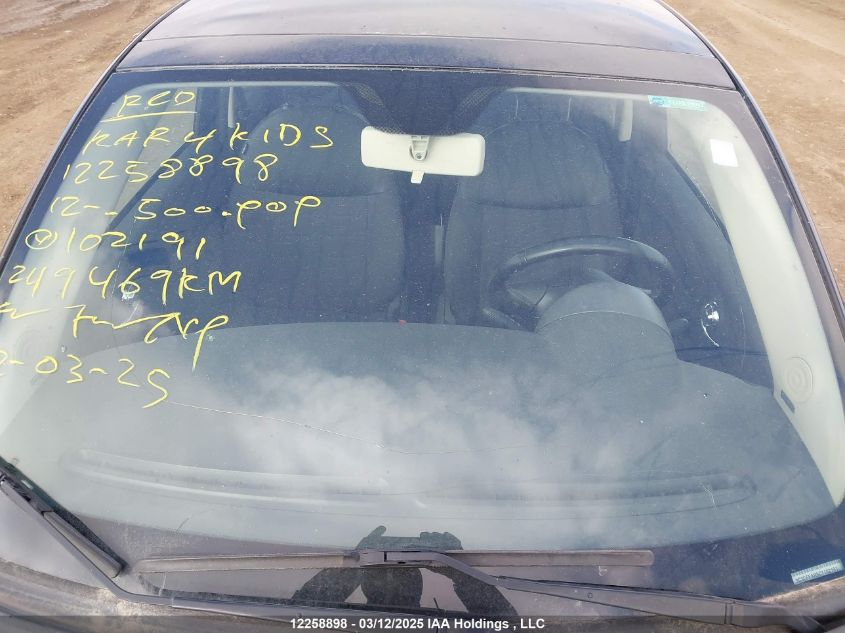 RCO
KAR 4 KIDS
12258898
12--500.POP
102191
249469KM
2-03-25
12258898 - 03/12/2025 IAA Holdings , LLC